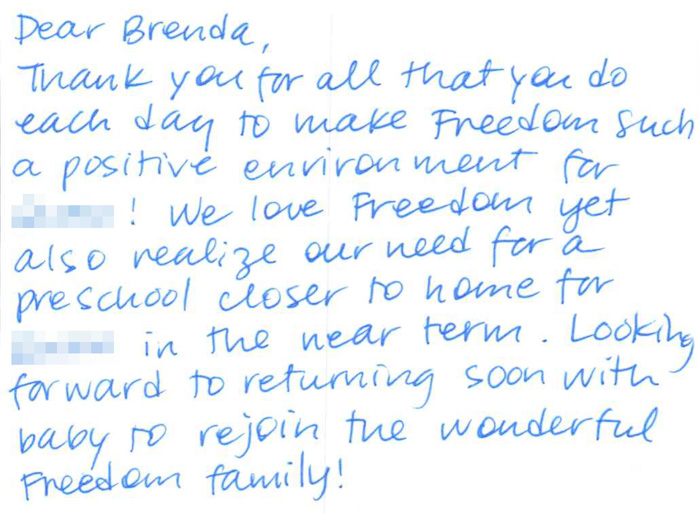 Dear Brenda,
Thank you for all that you do
each day to make Freedom such
a positive environment for
! We love Freedom yet
also realize our need for a
preschool closer to home for
in the near term. Looking
forward to returning soon with
baby to rejoin the wonderful
Freedom family!